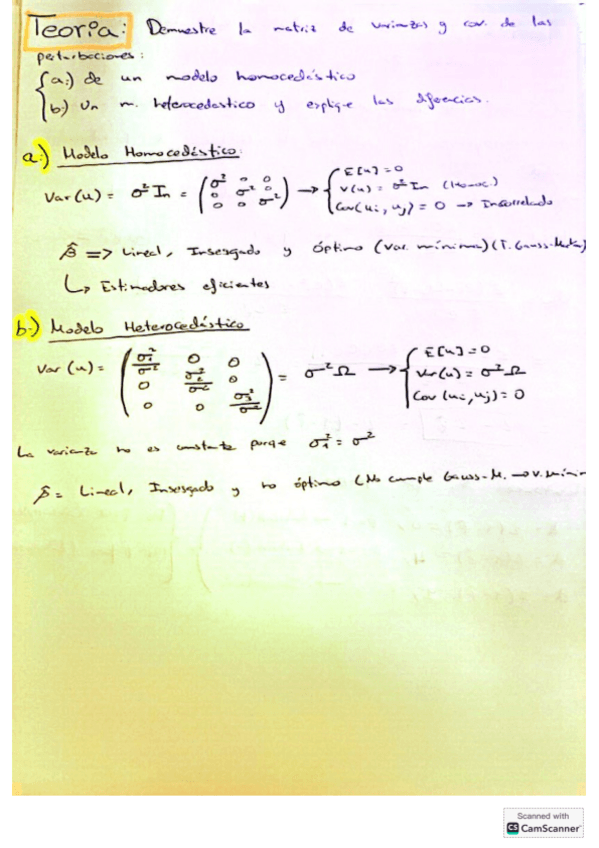 Teoría: Demuestre la matriz de varianzas y cov. de las
perturbaciones:
a:) de un modelo homocedástico
b:) Un m. heterocedastico y explique las diferencias.
a:) Modelo Homocedástico:
Var(u) = σ² In = (σ² 0 0
0 σ² 0
0 0 σ²) → { E[u] = 0
V(u) = σ² In (Homoc.)
Cov(ui, uj) = 0 → Incorrelado
β̂ => Lineal, Insesgado y óptimo (Var. mínima) (T. Gauss-
↳ Estimadores eficientes
b:) Modelo Heterocedástico
Var (u) = (σ₁²/σ² 0 0
0 σ₂²/σ² 0
0 0 σ₃²/σ²) = σ² Ω → { E[u] = 0
Var(u) = σ² Ω
Cov (ui, uj) = 0
La varianza no es constante porque σ₁² = σ²
β̂ = Lineal, Insesgado y no óptimo (No cumple Gauss-M. → v. mínim
Scanned with
CS CamScanner